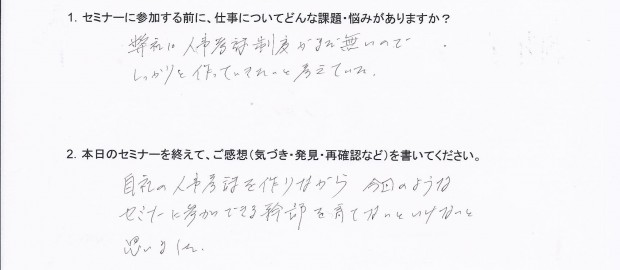 1. セミナーに参加する前に、仕事についてどんな課題・悩みがありますか?
弊社は人事考課制度がまだ無いので
しっかりと作っていきたいと考えていた。
2. 本日のセミナーを終えて、ご感想(気づき・発見・再確認など)を書いてください。
自社の人事考課を作りながら 今回のような
セミナーに参加できる幹部を育てないといけないと
思いました。